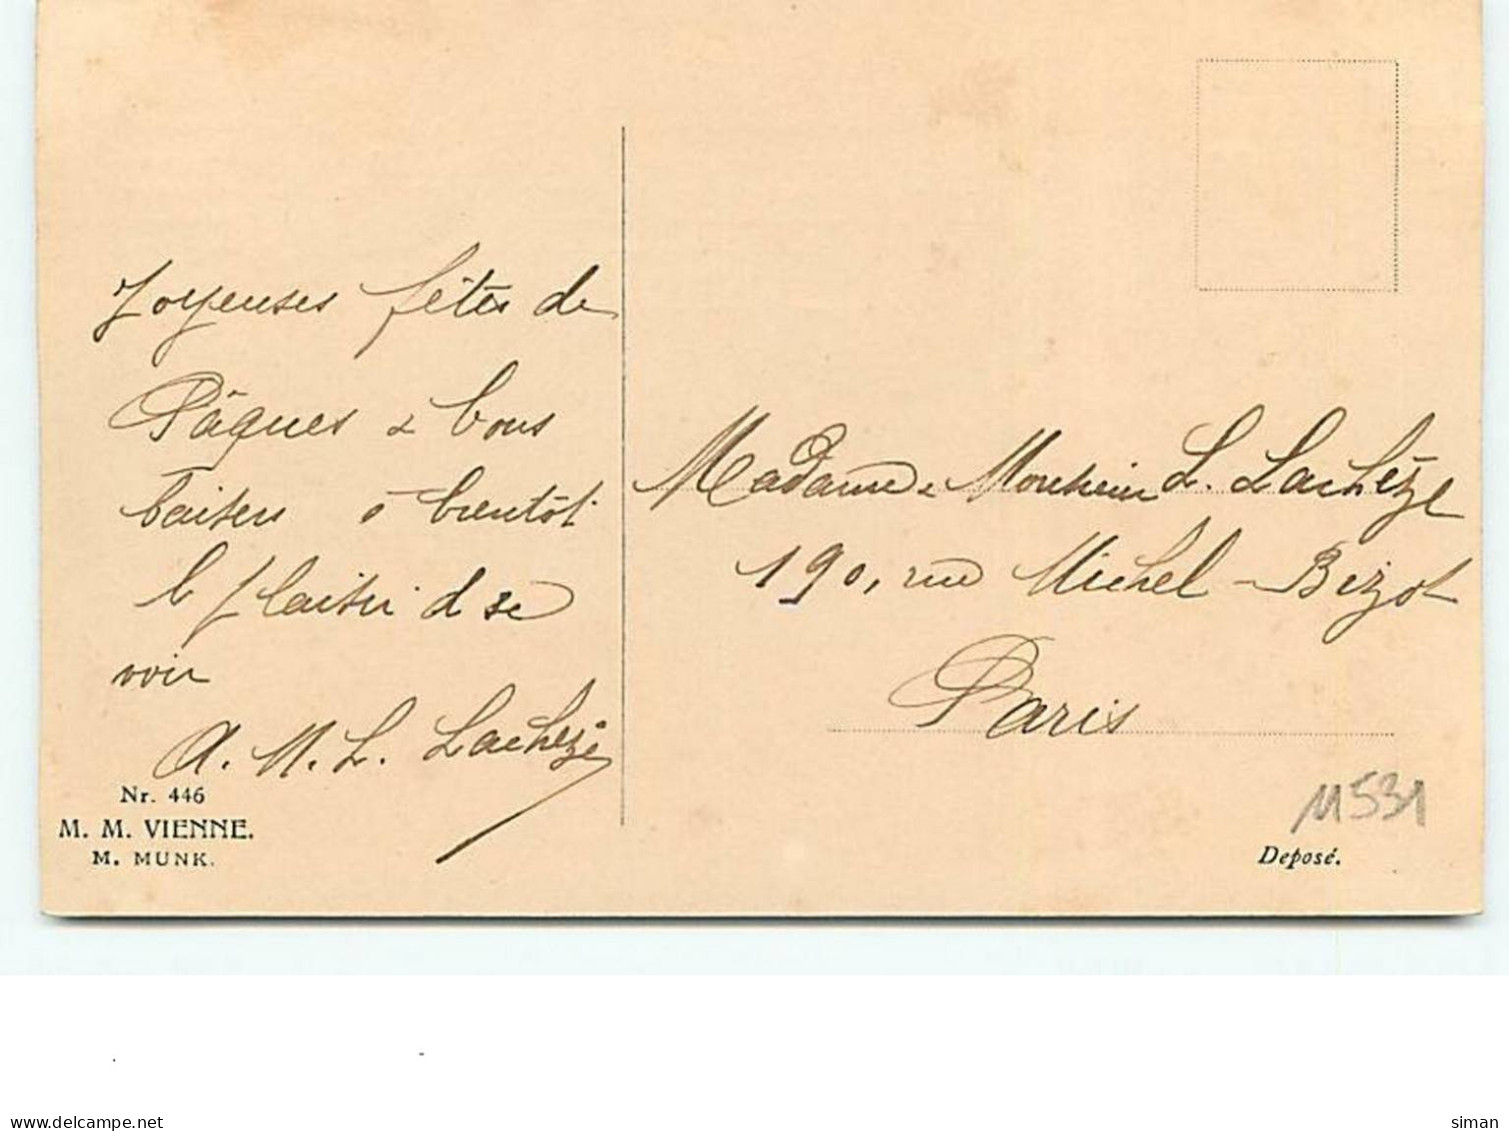 Joyeuses fêtes de
Pâques & bons
baisers à bientôt
le plaisir d se
voir
A. M. L. Lachèze
Nr. 446
M. M. VIENNE.
M. MUNK.
Madame & Monsieur L. Lachèze
190, rue Michel-Bizot
Paris
M531
Deposé.
delcampe.net
siman